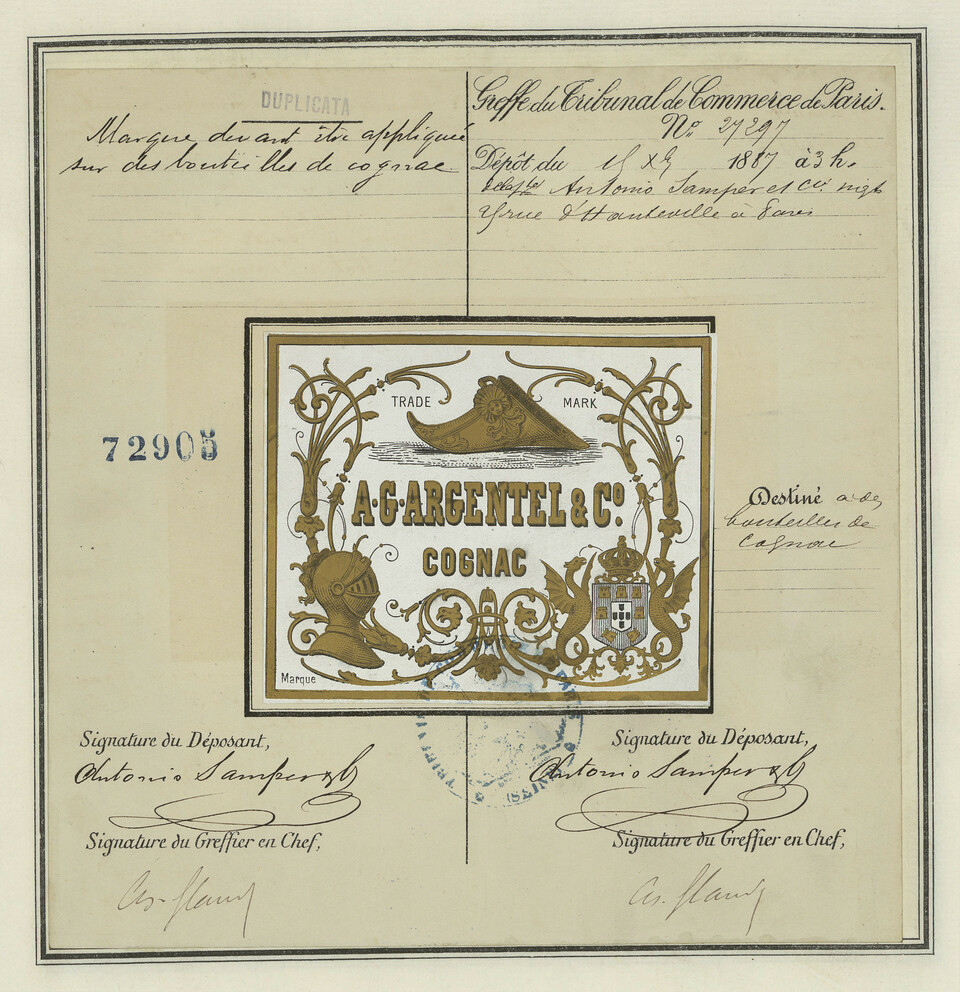 DUPLICATA
Marque devant être appliquée
sur des bouteilles de cognac
Greffe du Tribunal de Commerce de Paris.
No 27297
Dépôt du 15 Xbre 1887 à 3 h.
Antonio Samper et Cie
rue d'Hauteville à Paris
72905
TRADE MARK
A·G·ARGENTEL & Co.
COGNAC
Marque
Destiné à des
bouteilles de
Cognac
(SEINE)
Signature du Déposant,
Antonio Samper
Signature du Greffier en Chef,
Signature du Déposant,
Antonio Samper
Signature du Greffier en Chef,